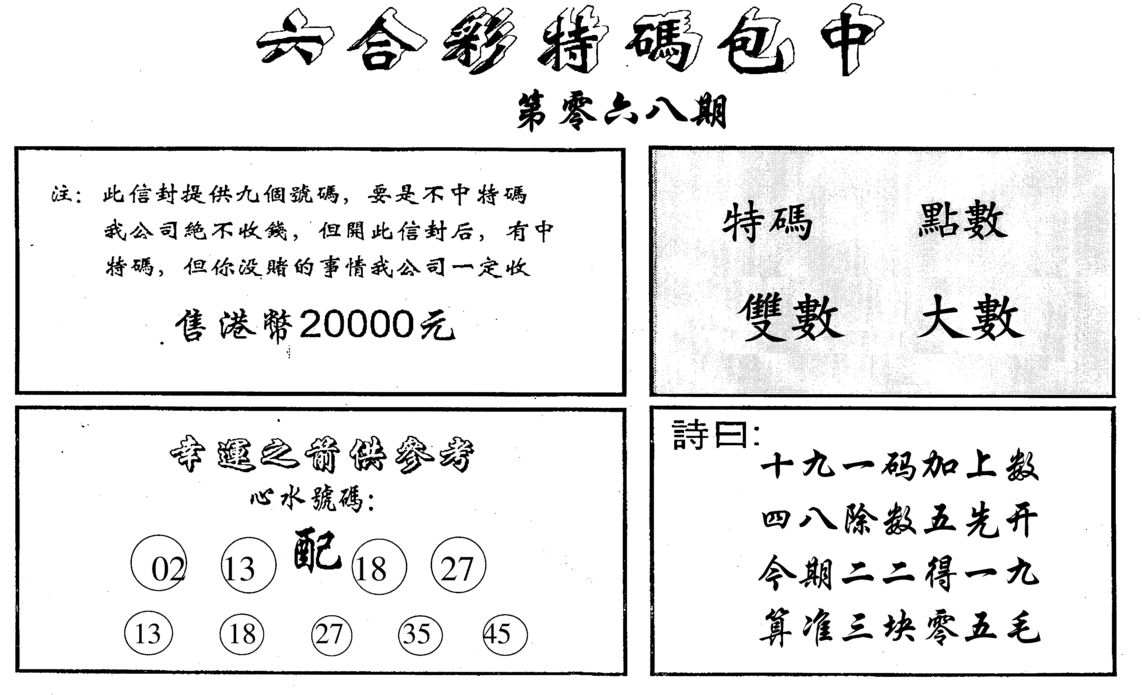 六合彩特碼包中
第零六八期
注：此信封提供九個號碼，要是不中特碼
我公司絕不收錢，但開此信封后，有中
特碼，但你没賭的事情我公司一定收
售港幣20000元
特碼 點數
雙數 大數
幸運之箭供參考
心水號碼：
02 13 配 18 27
13 18 27 35 45
詩曰：
十九一码加上数
四八除数五先开
今期二二得一九
算准三块零五毛